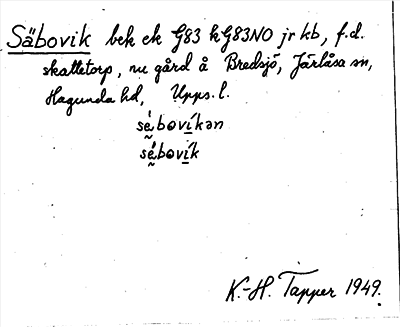 Säbovik bek ek G83 kG83NO jr kb, f.d.
skattetorp, nu gård å Bredsjö, Järlåsa sn,
Hagunda hd, Upps. l.
sḛ̀bovíkən
sḛ̀bovík
K.-H. Tapper 1949.